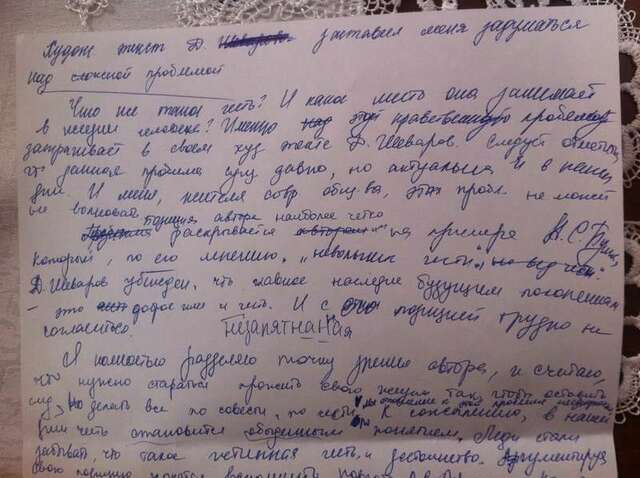 Худож текст Д. Шеварова заставил меня задуматься
над сложной проблемой
Что же такое честь? И какое место она занимает
в жизни человека? Именно над этой нравственную проблему
затрагивает в своем худ тексте Д. Шеваров. Следует отметить,
что данная проблема сущ давно, но актуальна и в наши
дни. И меня, жителя совр общ-ва, эта пробл не может
не волновать
позиция автора наиболее четко
раскрывается на примере Н. С.
который, по его мнению, "невольник чести"
Д. Шеваров убежден, что главное наследие будущим поколениям
- это доброе имя и честь. И с этой позицией трудно не
согласиться. незапятнанная
Я полностью разделяю точку зрения автора, и считаю,
что нужно стараться прожить свою жизнь так, чтобы оставить
след, но делать все по совести, по чести, К сожалению, в наши
дни честь становится обыденным понятием. Люди стали
забывать, что такое истинная честь и достоинство. Аргументируя
свою позицию хочется вспомнить